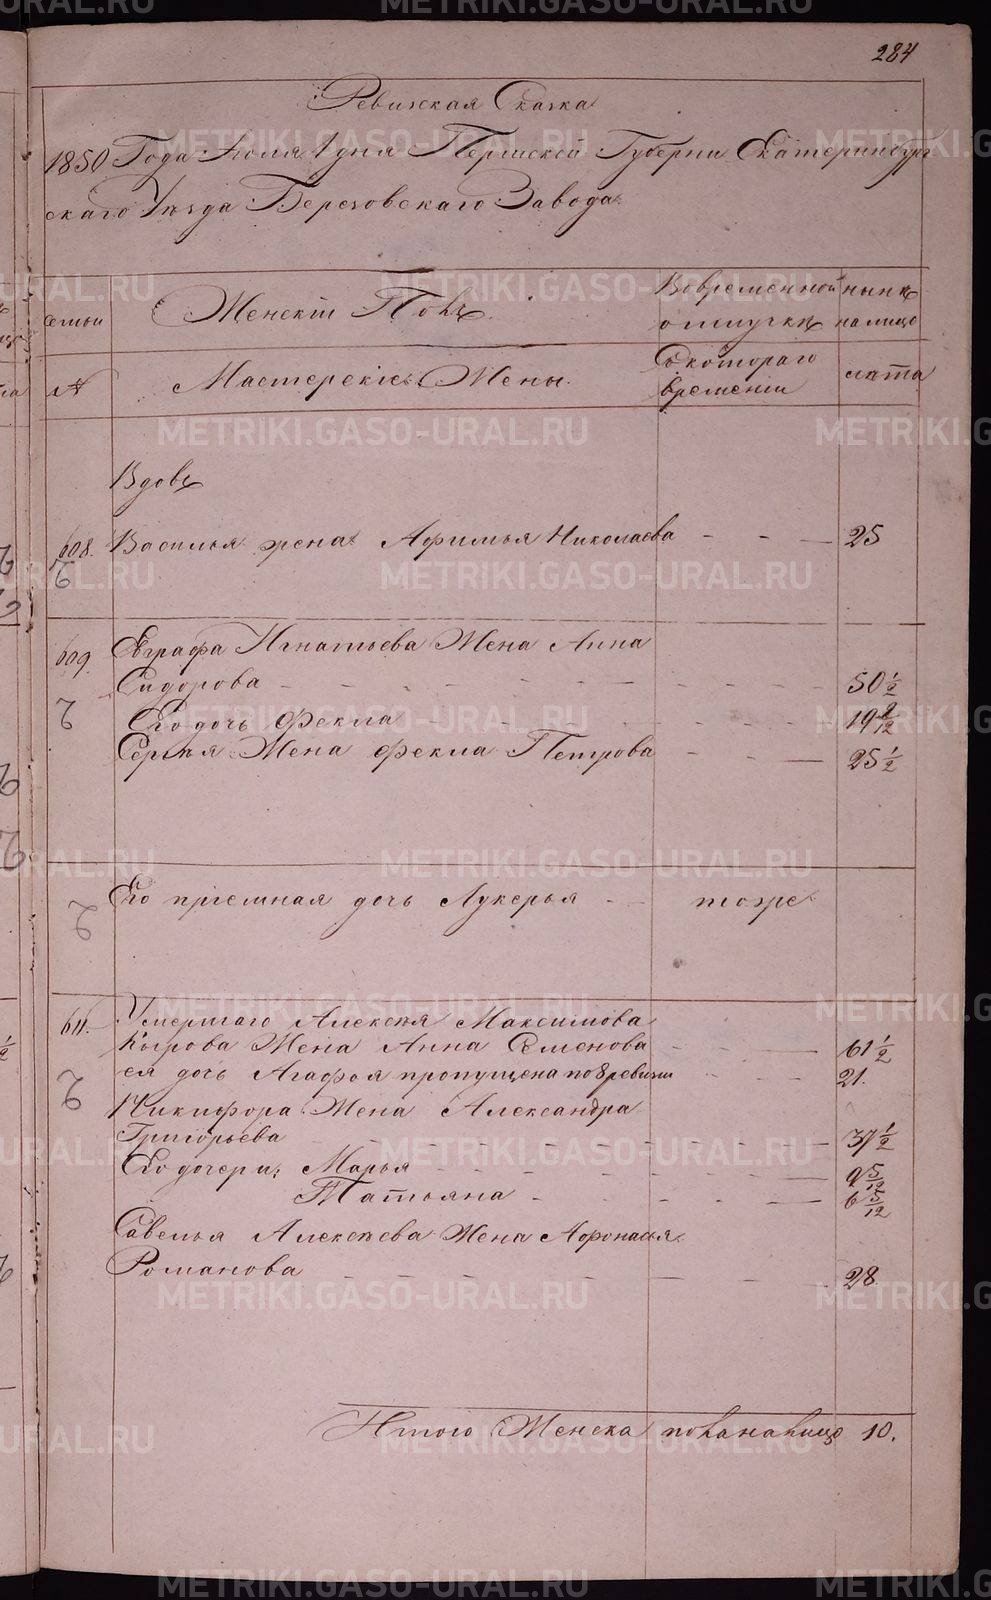 284
Ревизская Сказка
1850 Года Июля 1 дня Пермской Губерни Екатеринбург
скаго Уезда Березовскаго Завода
семьи
Женскiй Полъ
Вовременной
отлучкѣ
нынѣ
налицо
№
Мастерскiе Жены.
Съ котораго
времени
лѣта
Вдовы
608.
Василья жена Афимья Николаева
25
609.
Евграфа Игнатьева Жена Анна
Сидорова
50 1/2
Его дочь Фекла
19 8/12
Сергѣя Жена Фекла Петрова
25 1/2
Его прiемная дочь Лукерья
тоже
611.
Умершаго Алексѣя Максимова
Жена Анна Семенова
61 1/2
ея дочь Агафья пропущена по 8 ревизiи
21.
Никифора Жена Александра
Григорьева
37 1/2
Его дочери; Марья
9 5/12
Татьяна
6 5/12
Савелья Алексѣева Жена Афонасья
Романова
28
Итого Женска пола налицо 10.
METRIKI.GASO-URAL.RU